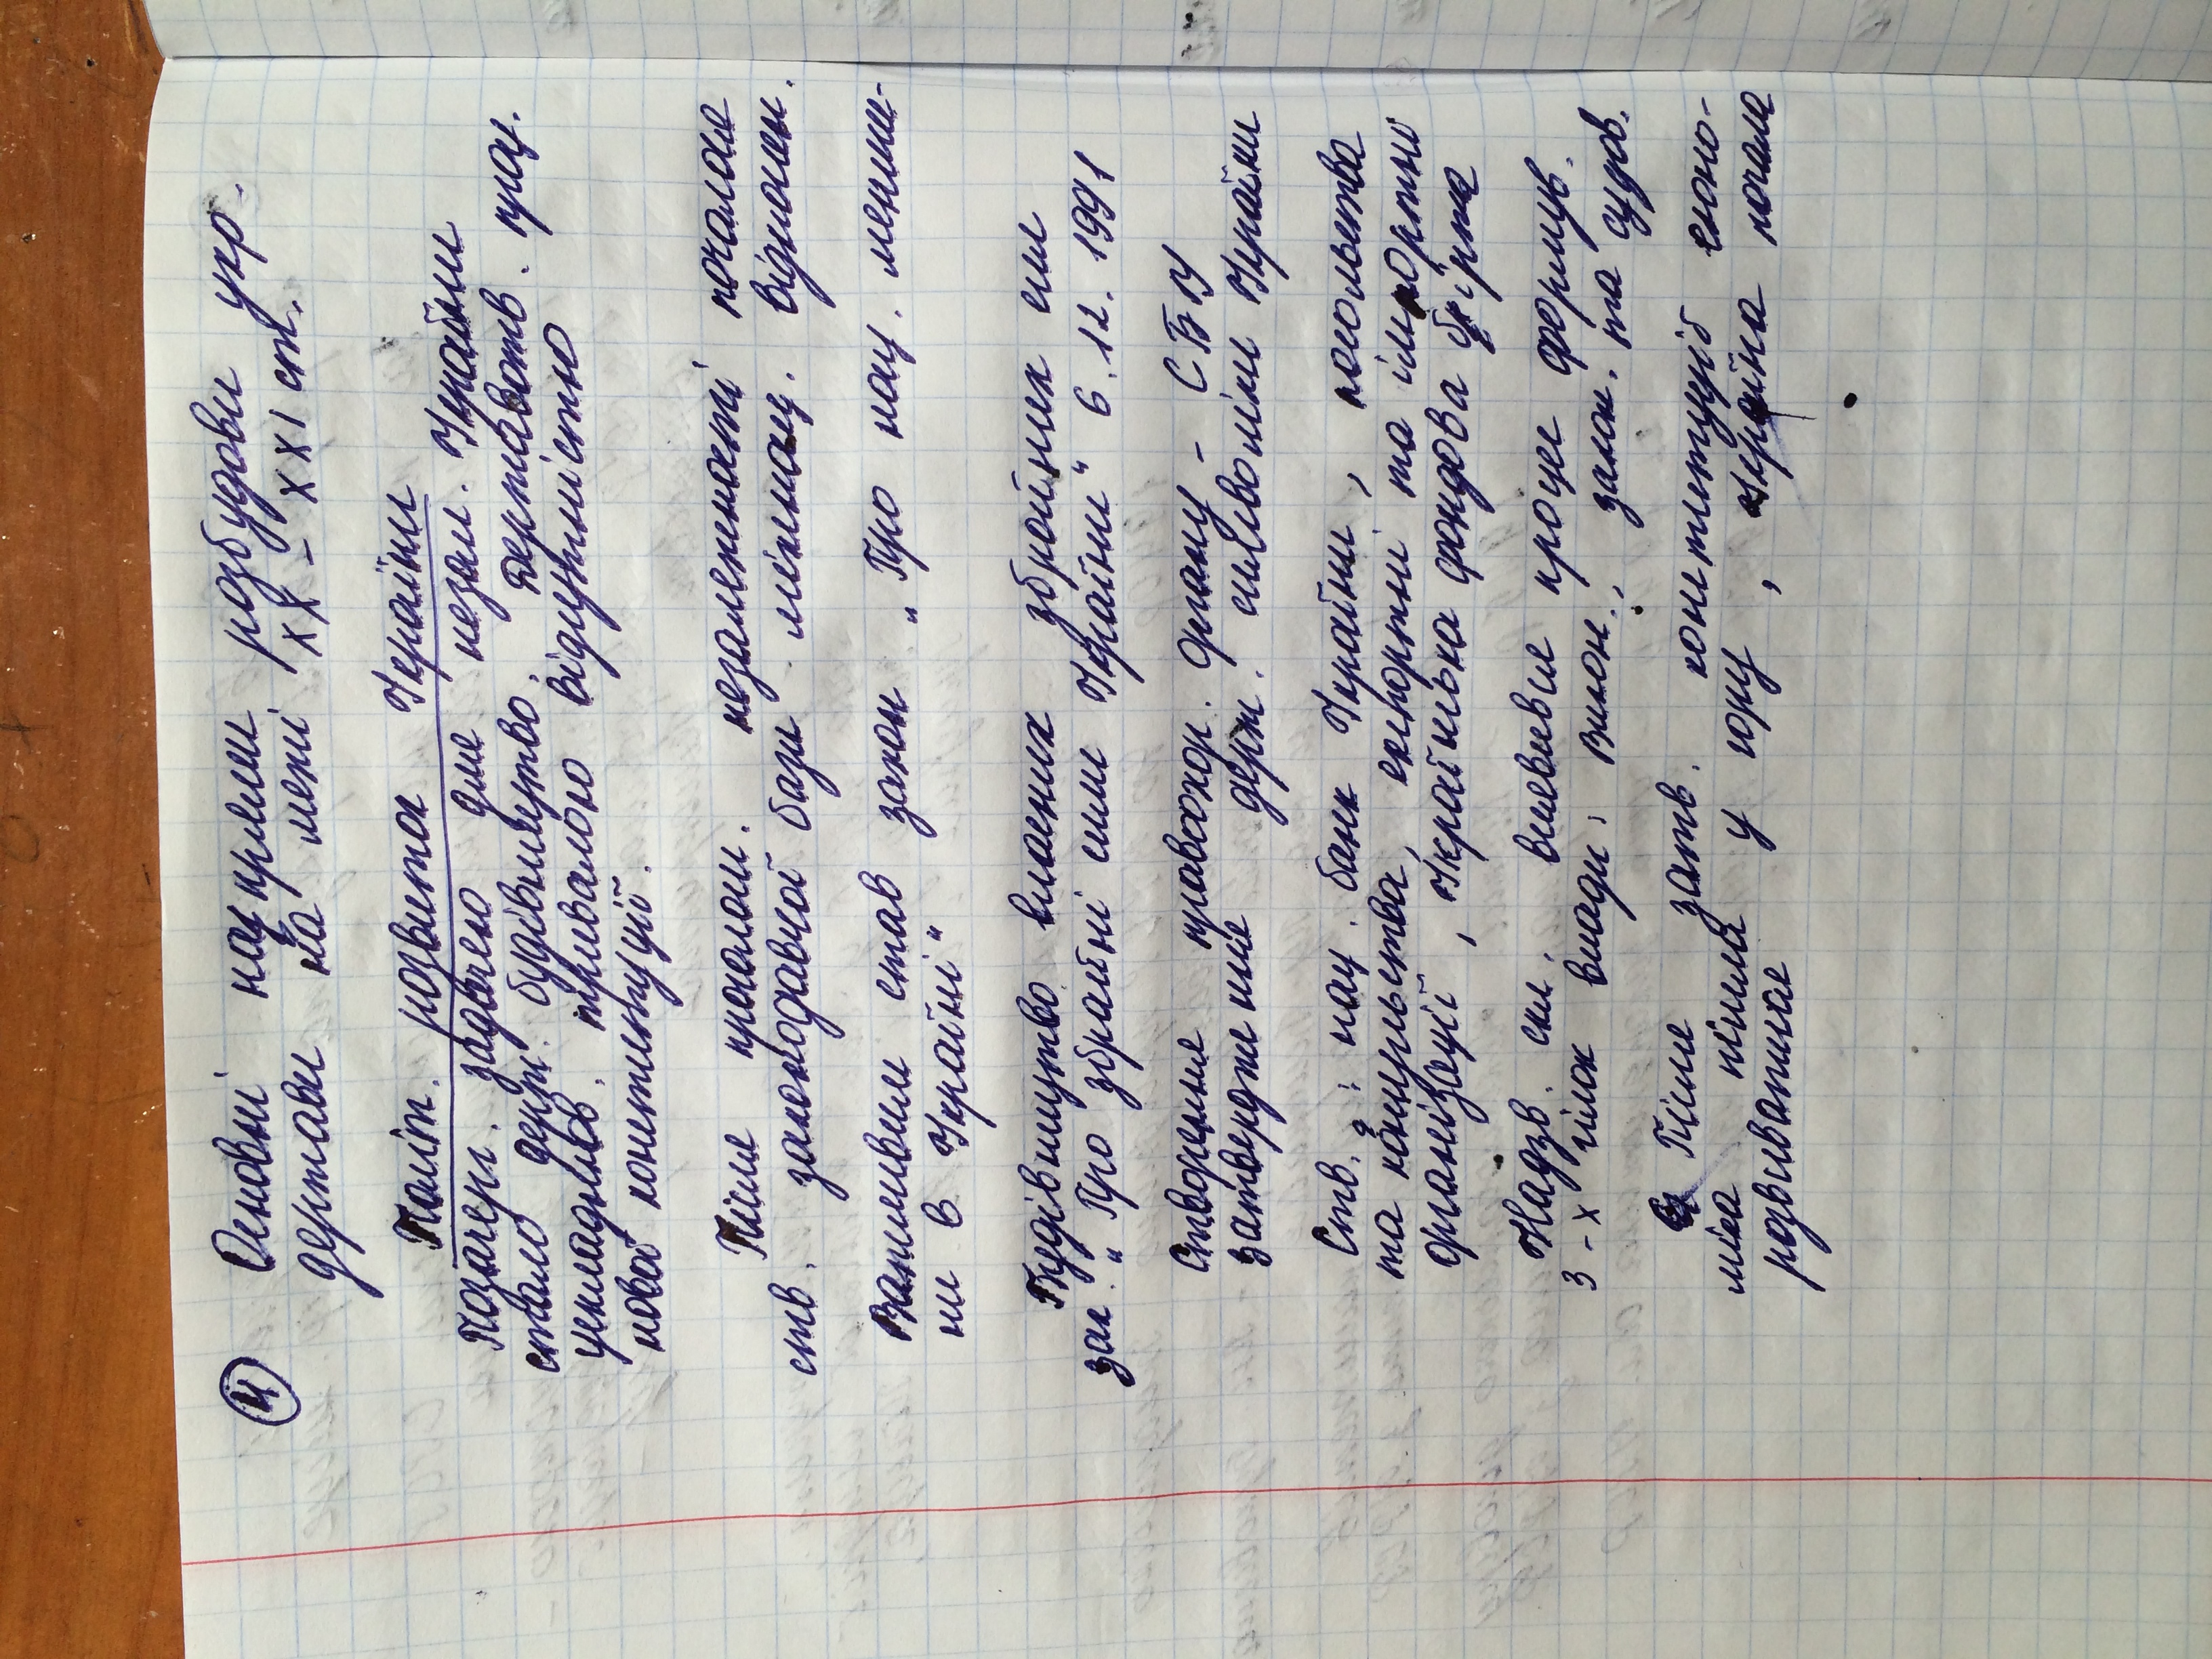 4 Основні напрями розбудови укр.
держави на межі XX - XXI ст.
Політ. розвиток України
Позачерг. задачею для незал. України
стало держ. будівництво. Державотв. проц.
ускладнюв. тривалою відсутністю
нової конституції.
Після проголош. незалежності почалося
ств. законодавчої бази міжнац. відносин.
Важливим став закон „Про нац. менши-
ни в Україні"
Будівництво власних збройних сил
зак. „Про збройні сили України" 6.12.1991
Створення правоохор. органу - СБУ
затвердження держ. символіки України
Ств. : нац. банк України, посольства
та консульства, експортні та імпортні
організації, Українська фондова біржа
Надзв. скл. виявився процес формув.
3-х гілок влади: викон., закон. та судов.
Після затв. конституції еконо-
міка пішла у гору, Україна почала
розвиватися